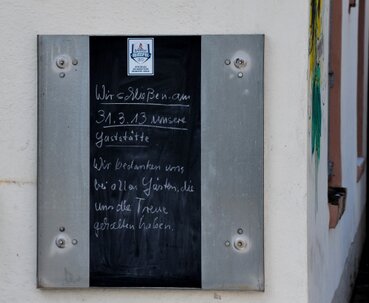 Wir schließen am
31.3.13 unsere
Gaststätte
Wir bedanken uns
bei allen Gästen, die
uns die Treue
gehalten haben.